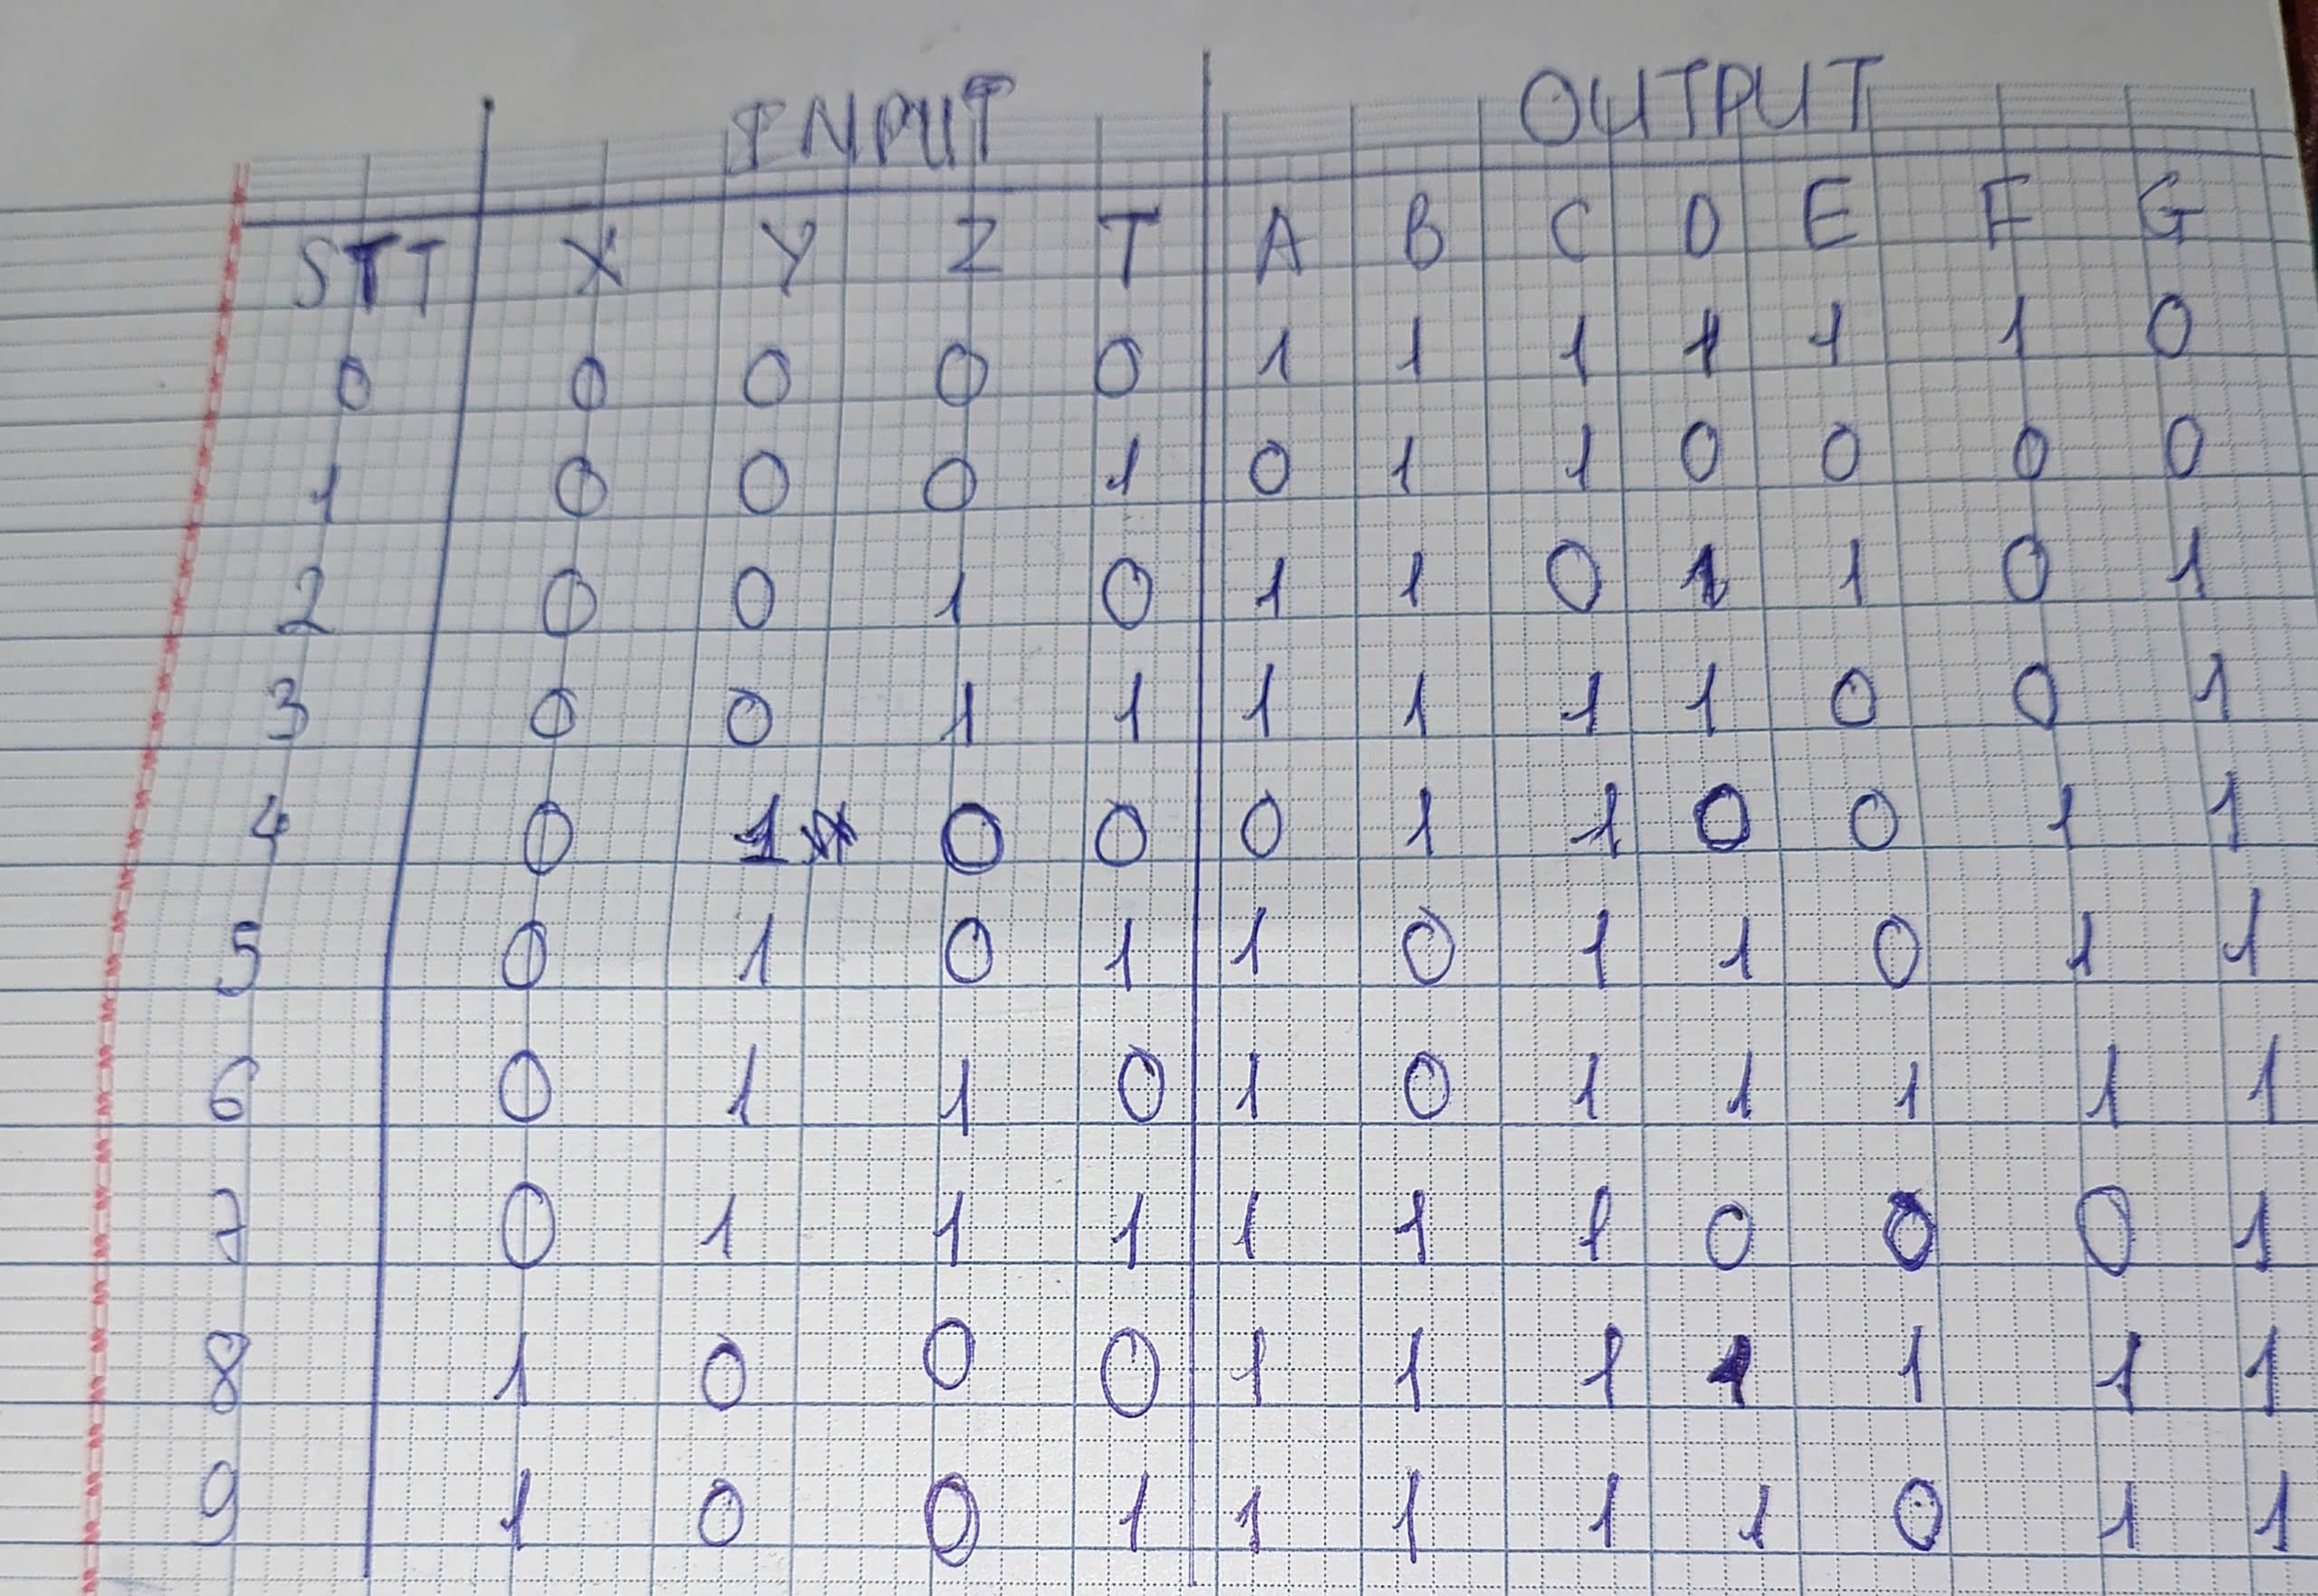 INPUT OUTPUT
STT X Y Z T A B C D E F G
0 0 0 0 0 1 1 1 1 1 1 0
1 0 0 0 1 0 1 1 0 0 0 0
2 0 0 1 0 1 1 0 1 1 0 1
3 0 0 1 1 1 1 1 1 0 0 1
4 0 1 0 0 0 1 1 0 0 1 1
5 0 1 0 1 1 0 1 1 0 1 1
6 0 1 1 0 1 0 1 1 1 1 1
7 0 1 1 1 1 1 1 0 0 0 1
8 1 0 0 0 1 1 1 1 1 1 1
9 1 0 0 1 1 1 1 1 0 1 1